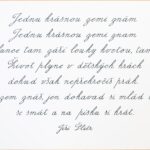 Jednu krásnou zemi znám
Jednu krásnou zemi znám
tam září louky kvetou, tam
život plyne v dětských hrách
dokud však nepřekročíš práh.
znáš, jen dokavad si mlád
se smát a na písku si hrát.
Jiří